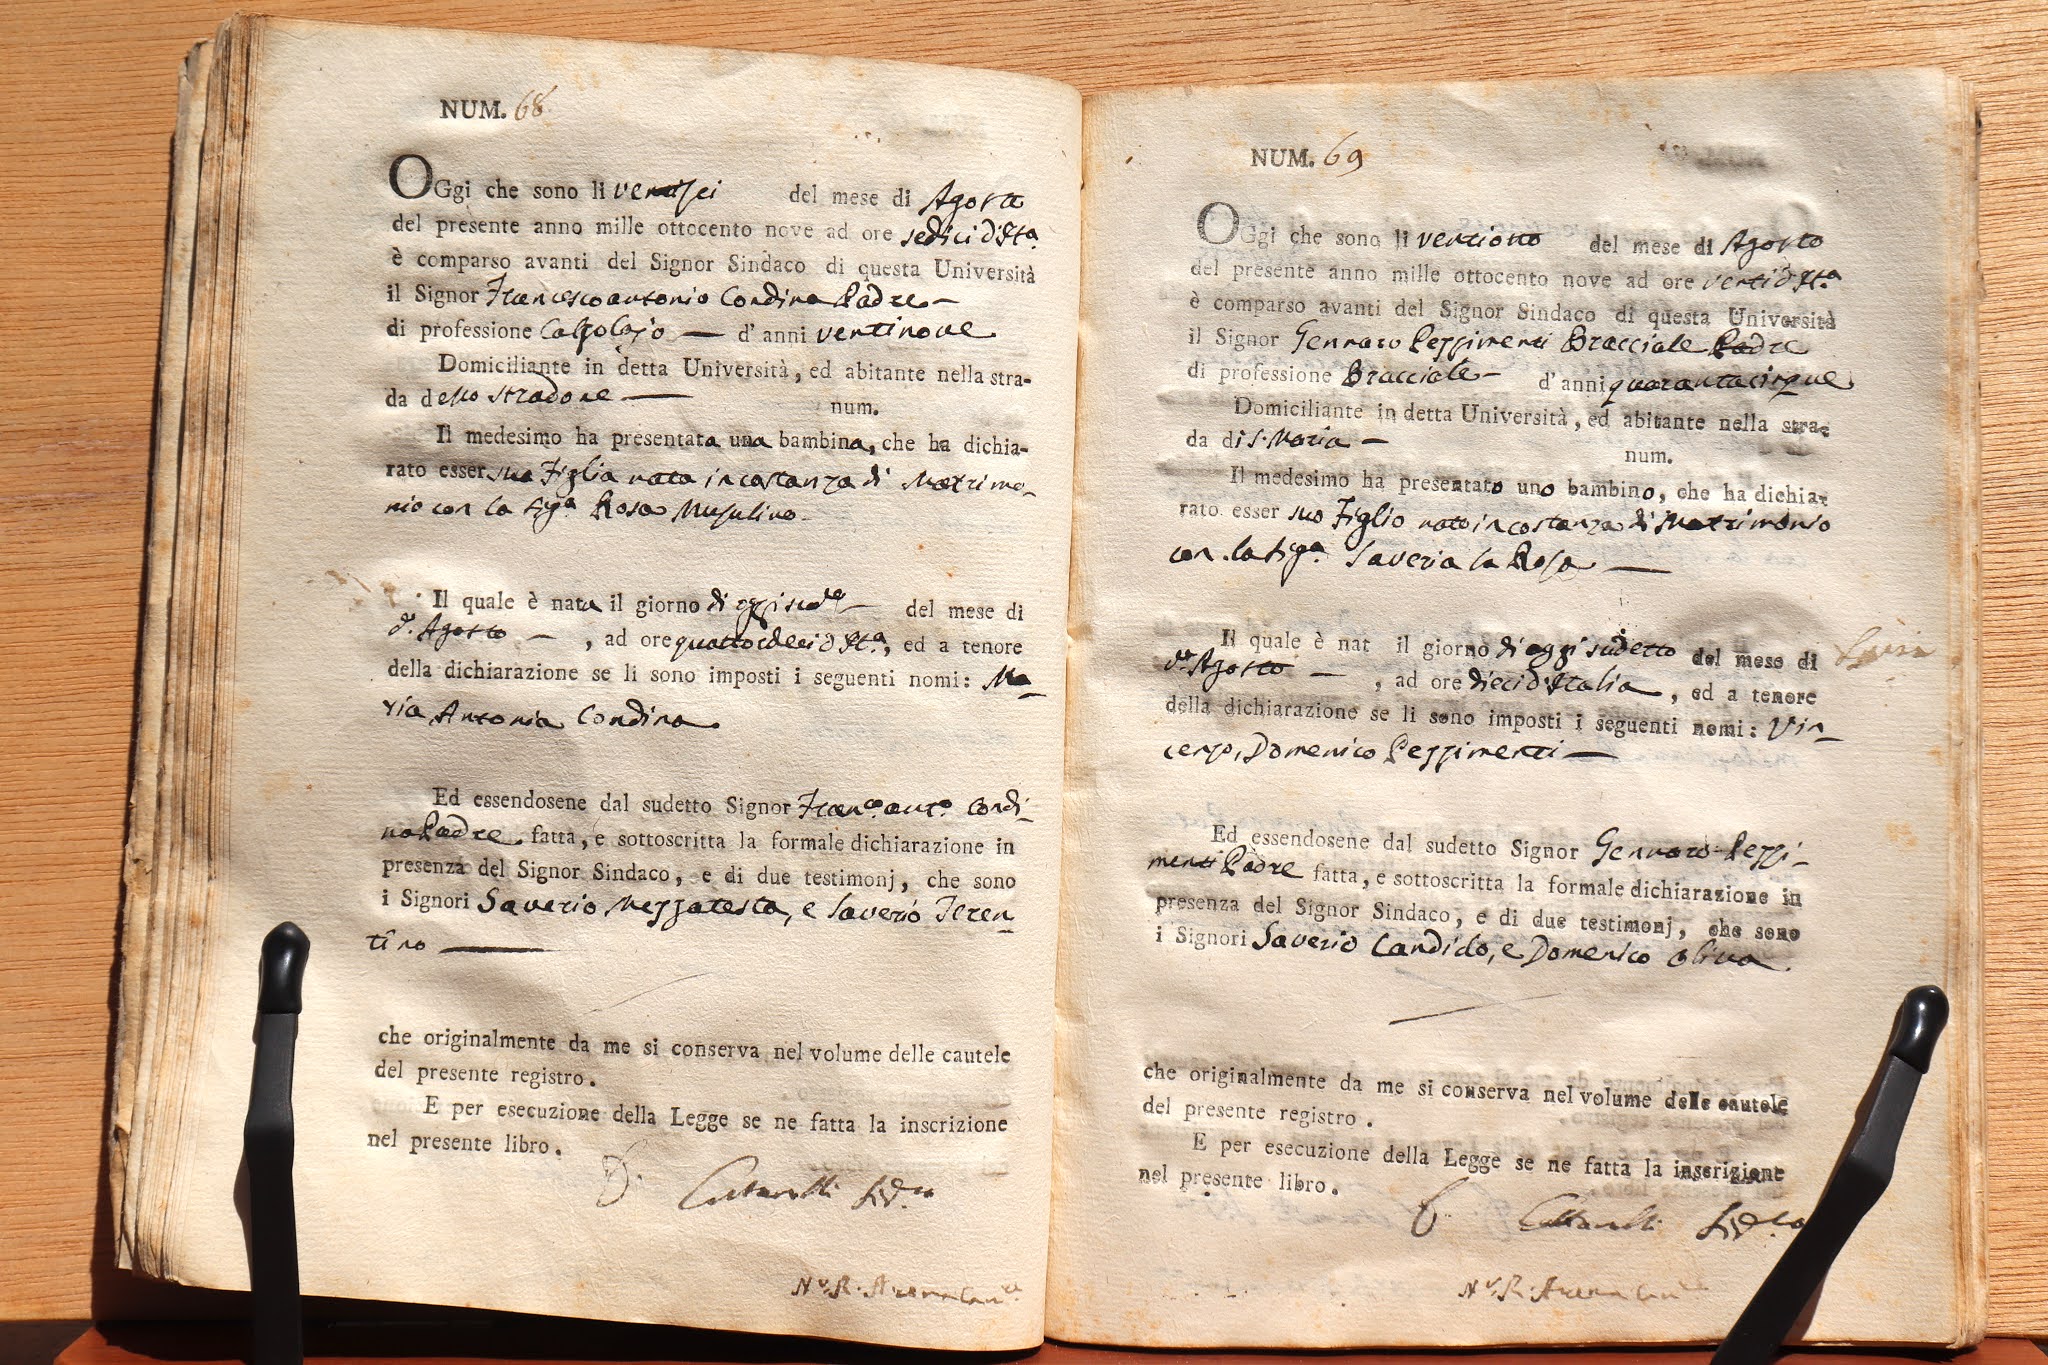 NUM. 68
OGgi che sono li ventisei del mese di Agosto
del presente anno mille ottocento nove ad ore sedici d'Ita.
è comparso avanti del Signor Sindaco di questa Università
il Signor Francescoantonio Condina Padre —
di professione Calzolajo — d'anni ventinove
Domiciliante in detta Università, ed abitante nella stra-
da dello stradone — num.
Il medesimo ha presentata una bambina, che ha dichia-
rato esser sua Figlia nata in costanza di Matrimo-
nio con la Siga. Rosa Musulino
Il quale è nata il giorno di oggi sudo. — del mese di
do. Agosto — , ad ore quattordeci d'Ita., ed a tenore
della dichiarazione se li sono imposti i seguenti nomi: Ma-
ria Antonia Condina
Ed essendosene dal sudetto Signor Franco. anto. Condi-
na Padre fatta, e sottoscritta la formale dichiarazione in
presenza del Signor Sindaco, e di due testimonj, che sono
i Signori Saverio Mezzatesta, e Saverio Teren-
tino —
che originalmente da me si conserva nel volume delle cautele
del presente registro.
E per esecuzione della Legge se ne fatta la inscrizione
nel presente libro.
Sidco
Nr. R. Arena Cane
NUM. 69
OGgi che sono li ventiotto del mese di Agosto
del presente anno mille ottocento nove ad ore venti d'Ita.
è comparso avanti del Signor Sindaco di questa Università
il Signor Gennaro Pezzimenti Bracciale Padre
di professione Bracciale — d'anni quarantacinque
Domiciliante in detta Università, ed abitante nella stra-
da di S. Maria — num.
Il medesimo ha presentato uno bambino, che ha dichia-
rato esser suo Figlio nato in costanza di Matrimonio
con la Siga. Saveria la Rosa —
Il quale è nat il giorno di oggi sudetto del mese di
do. Agosto — , ad ore dieci d'Italia, ed a tenore
della dichiarazione se li sono imposti i seguenti nomi: Vin-
cenzo, Domenico Pezzimenti —
Ed essendosene dal sudetto Signor Gennaro Pezzi-
menti Padre fatta, e sottoscritta la formale dichiarazione in
presenza del Signor Sindaco, e di due testimonj, che sono
i Signori Saverio Candido, e Domenico Oliva
che originalmente da me si conserva nel volume delle cautele
del presente registro.
E per esecuzione della Legge se ne fatta la inscrizione
nel presente libro.
Sidco
Nr. R. Arena Cane